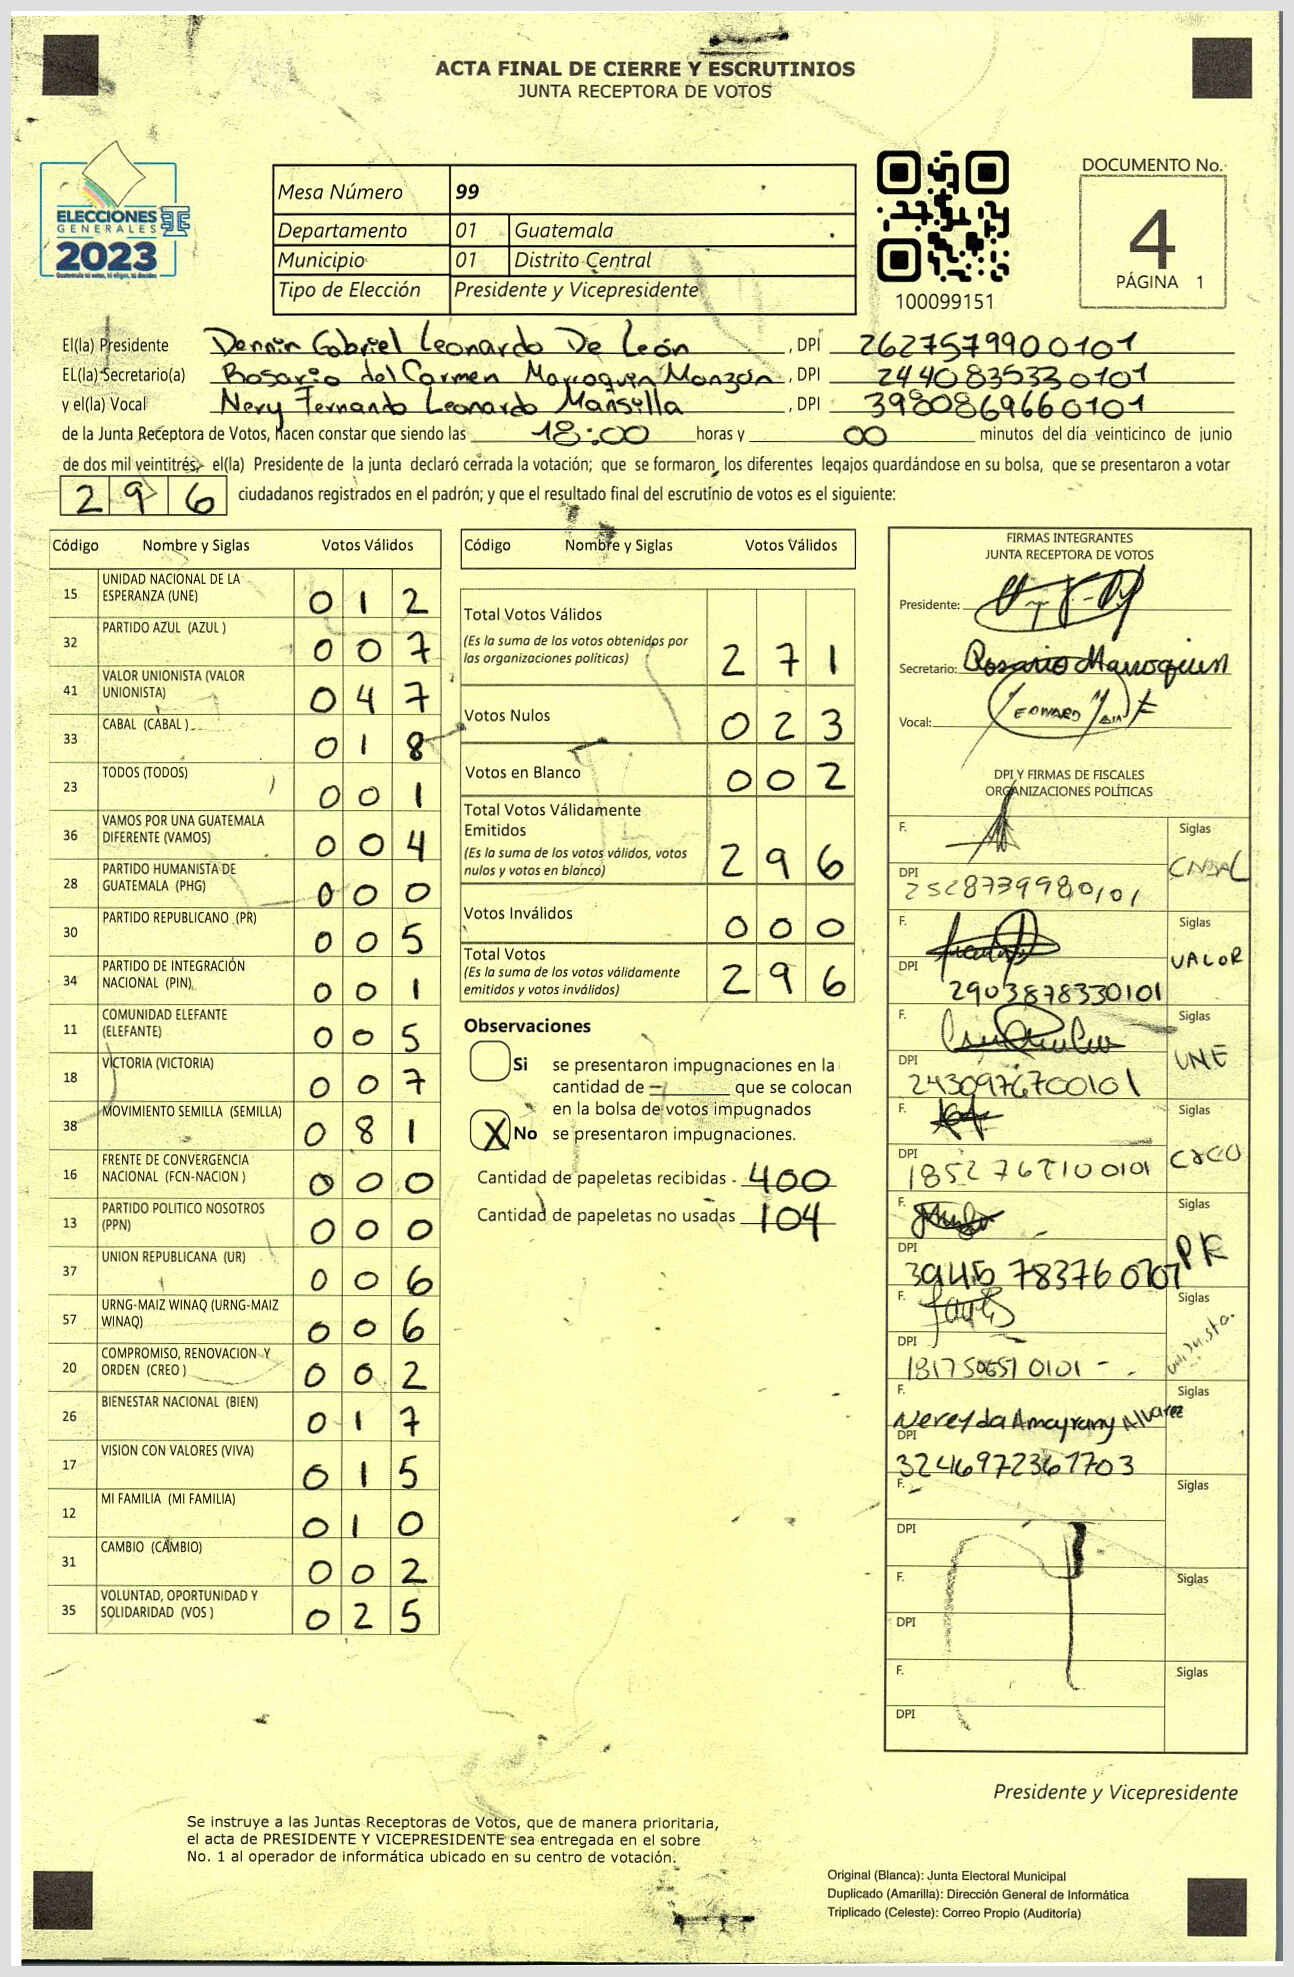 ACTA FINAL DE CIERRE Y ESCRUTINIOS
JUNTA RECEPTORA DE VOTOS
ELECCIONES
GENERALES
2023
Mesa Número 99
Departamento 01 Guatemala
Municipio 01 Distrito Central
Tipo de Elección Presidente y Vicepresidente
100099151
DOCUMENTO No.
4
PÁGINA 1
El(la) Presidente Dennin Gabriel Leonardo De León, DPI 2627579900101
EL(la) Secretario(a) Rosario del Carmen Marroquin Monzón, DPI 2440835330101
y el(la) Vocal Nery Fernando Leonardo Mansilla, DPI 3980869660101
de la Junta Receptora de Votos, hacen constar que siendo las 18:00 horas y 00 minutos del día veinticinco de junio
de dos mil veintitrés, el(la) Presidente de la junta declaró cerrada la votación; que se formaron los diferentes legajos guardándose en su bolsa, que se presentaron a votar
296 ciudadanos registrados en el padrón; y que el resultado final del escrutinio de votos es el siguiente:
Código Nombre y Siglas Votos Válidos
15 UNIDAD NACIONAL DE LA
ESPERANZA (UNE) 012
32 PARTIDO AZUL (AZUL ) 007
41 VALOR UNIONISTA (VALOR
UNIONISTA) 047
33 CABAL (CABAL ) 018
23 TODOS (TODOS) 001
36 VAMOS POR UNA GUATEMALA
DIFERENTE (VAMOS) 004
28 PARTIDO HUMANISTA DE
GUATEMALA (PHG) 000
30 PARTIDO REPUBLICANO (PR) 005
34 PARTIDO DE INTEGRACIÓN
NACIONAL (PIN) 001
11 COMUNIDAD ELEFANTE
(ELEFANTE) 005
18 VICTORIA (VICTORIA) 007
38 MOVIMIENTO SEMILLA (SEMILLA) 081
16 FRENTE DE CONVERGENCIA
NACIONAL (FCN-NACION ) 000
13 PARTIDO POLITICO NOSOTROS
(PPN) 000
37 UNION REPUBLICANA (UR) 006
57 URNG-MAIZ WINAQ (URNG-MAIZ
WINAQ) 006
20 COMPROMISO, RENOVACION Y
ORDEN (CREO ) 002
26 BIENESTAR NACIONAL (BIEN) 017
17 VISION CON VALORES (VIVA) 015
12 MI FAMILIA (MI FAMILIA) 010
31 CAMBIO (CAMBIO) 002
35 VOLUNTAD, OPORTUNIDAD Y
SOLIDARIDAD (VOS ) 025
Código Nombre y Siglas Votos Válidos
Total Votos Válidos
(Es la suma de los votos obtenidos por
las organizaciones políticas) 271
Votos Nulos 023
Votos en Blanco 002
Total Votos Válidamente
Emitidos
(Es la suma de los votos válidos, votos
nulos y votos en blanco) 296
Votos Inválidos 000
Total Votos
(Es la suma de los votos válidamente
emitidos y votos inválidos) 296
Observaciones
Si se presentaron impugnaciones en la
cantidad de que se colocan
en la bolsa de votos impugnados
X No se presentaron impugnaciones.
Cantidad de papeletas recibidas 400
Cantidad de papeletas no usadas 104
FIRMAS INTEGRANTES
JUNTA RECEPTORA DE VOTOS
Presidente:
Secretario: Rosario Marroquin
Vocal:
DPI Y FIRMAS DE FISCALES
ORGANIZACIONES POLÍTICAS
F. Siglas
DPI
2528739980101
F. Siglas
VALOR
DPI
2903878330101
F. Siglas
UNE
DPI
2430976700101
F. Siglas
DPI
F. Siglas
DPI
F. Siglas
DPI
F. Siglas
Nereyda Amayrany Alvarez
DPI
3246972361703
F. Siglas
DPI
F. Siglas
DPI
F. Siglas
DPI
Presidente y Vicepresidente
Se instruye a las Juntas Receptoras de Votos, que de manera prioritaria,
el acta de PRESIDENTE Y VICEPRESIDENTE sea entregada en el sobre
No. 1 al operador de informática ubicado en su centro de votación.
Original (Blanca): Junta Electoral Municipal
Duplicado (Amarilla): Dirección General de Informática
Triplicado (Celeste): Correo Propio (Auditoría)